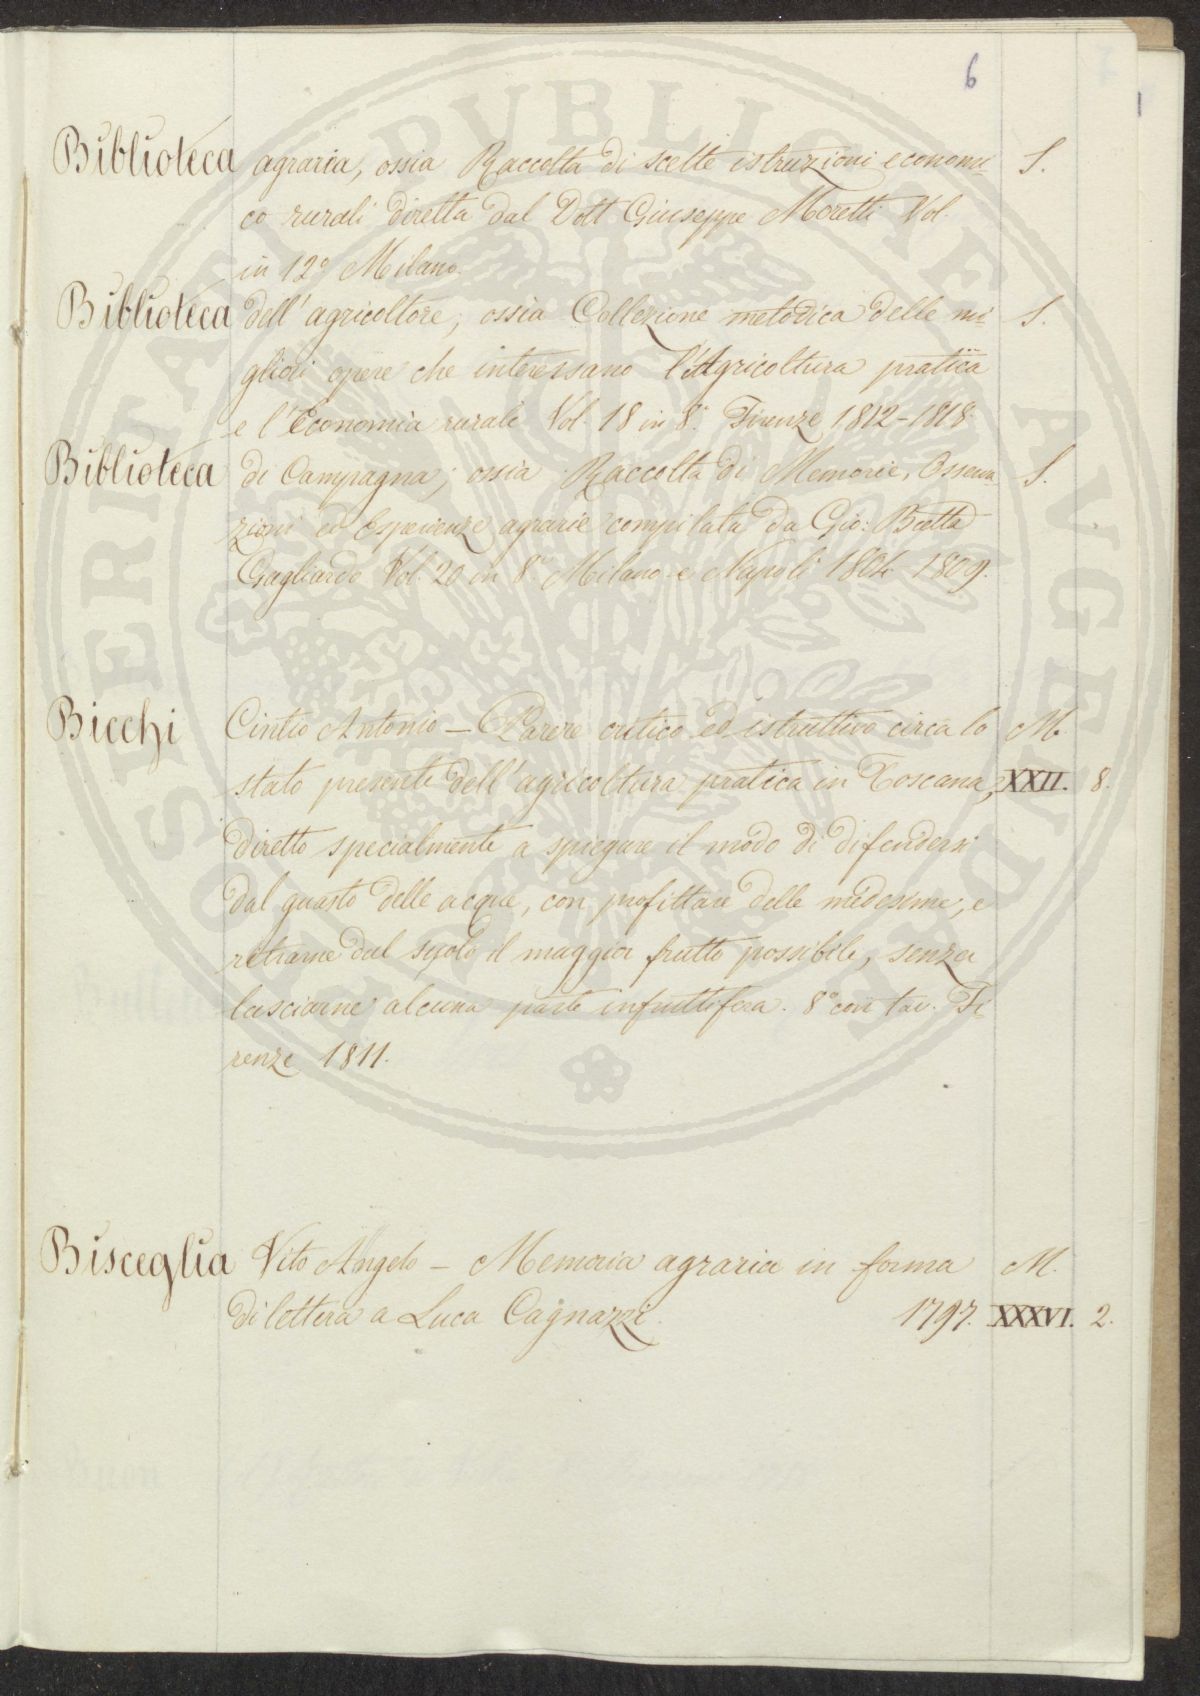 6
Biblioteca agraria, ossia Raccolta di scelte istruzioni economi- S.
co rurali diretta dal Dott Giuseppe Moretti Vol.
in 12° Milano.
Biblioteca dell'agricoltore, ossia Collezione metodica delle mi- S.
gliori opere che interessano l'Agricoltura pratica
e l'Economia rurale Vol. 18 in 8.° Firenze 1812-1818.
Biblioteca di Campagna; ossia Raccolta di Memorie, Osserva- S.
zioni ed Esperienze agrarie compilata da Gio: Batta
Gagliardo Vol. 20 in 8.° Milano e Napoli 1804 1809.
Bicchi Cintio Antonio — Parere critico ed istruttivo circa lo M.
stato presente dell'agricoltura pratica in Toscana, XXII. 8.
diretto specialmente a spiegare il modo di difendersi
dal guasto delle acque, con profittare delle medesime, e
ritrarne dal suolo il maggior frutto possibile, senza
lasciarne alcuna parte infruttifera. 8° con tav. Fi
renze 1811.
Bisceglia Vito Angelo — Memoria agraria in forma M.
di lettera a Luca Cagnazzi. 1797. XXXVI. 2.
SOCIETAS PUBLICAE AUGENDAE PROSPERITATI